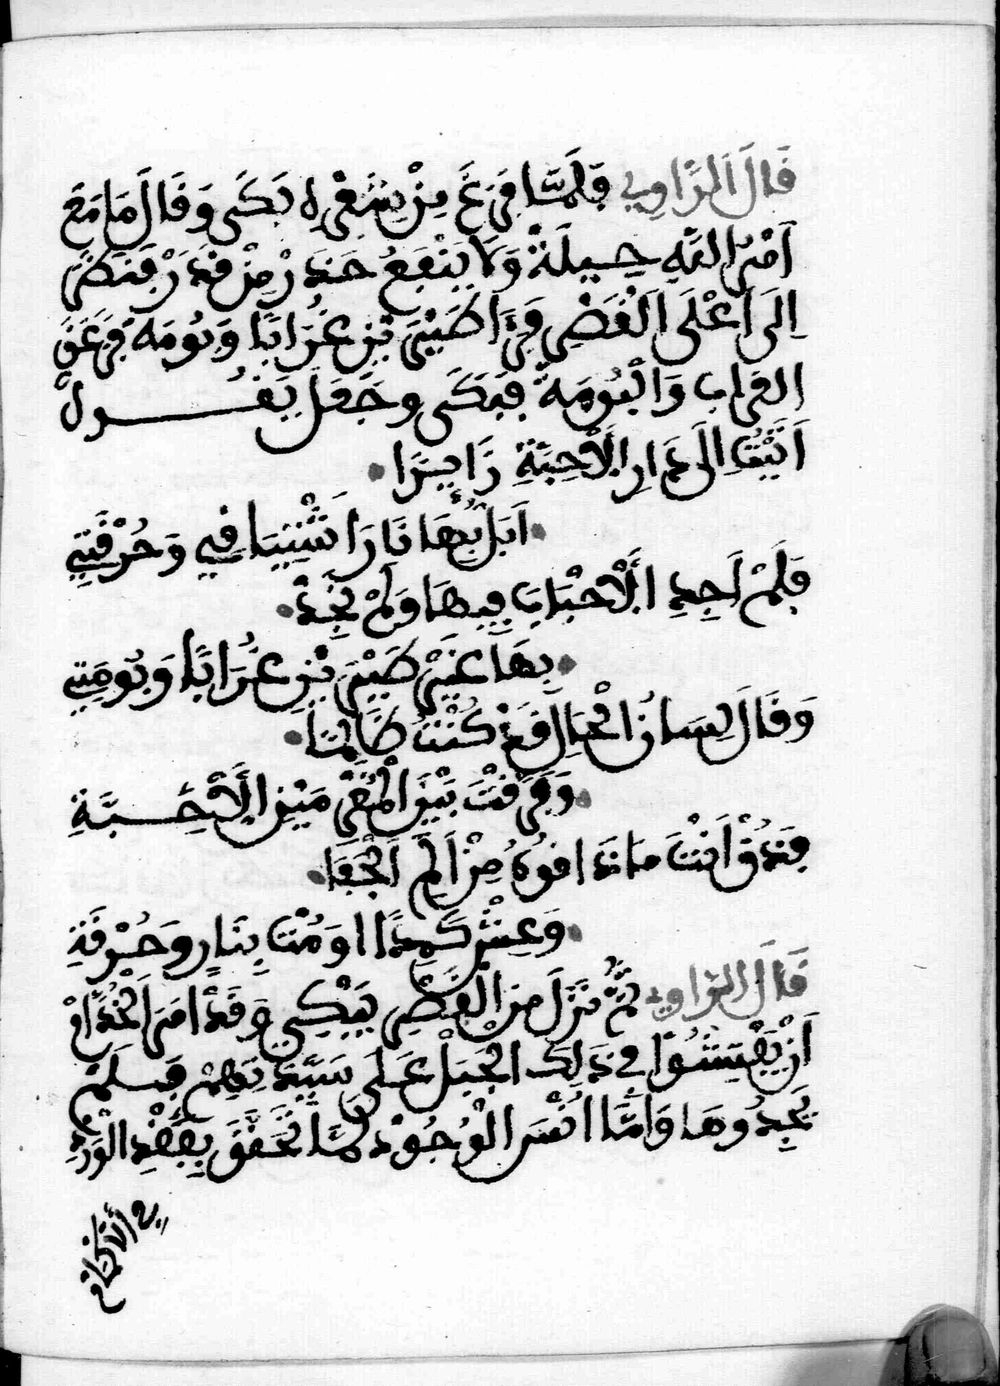 قَالَ الرَّاوِي فَلَمَّا فَرَغَ مِنْ شِعْرِهِ بَكَى وَقَالَ مَا مَعَ
اَمْرِ اللهِ حِيلَةٌ وَلَا يَنْفَعُ حَذَرْ مِنْ قَدَرْ فَنَظَرَ
اِلَى اَعْلَى الْقَصْرِ فَرَءَا طَيْرَيْنِ غُرَابًا وَبُومَة فَزَعَقَ
الغراب وَالْبُومَةُ فَبَكَى وجَعَلَ يَقُولُ
اَتَيْتُ اِلَى دَارِ الْأَحِبَّةِ زَايِرَا
اَبَلُّ بِهَا نَارَ اشْتِيَافِي وَحُرْقَتِي
فَلَمْ اَجِدِ الْأَحْبَابَ فِيهَا وَلَمْ نَجِدْ
بِهَا غَيْرَ طَيْرَيْنِ غُرَابًا وَبُومَتِي
وَقَالَ لِسَانُ الْحَالِ قَدْ كُنْتَ ظَالِمًا
وَفَرَّقْتَ بَيْنَ الْمُغْرَمِينَ الْأَحِبَّةِ
فَذُقْ اَنْتَ مَا ذَاقُوهُ مِنْ اَلَمِ الْجَفَا
وَعِشْ كَمِدًا اوَمُتْ بِنَارٍ وَحُرْقَةِ
قَالَ الرَّاوِي ثُمَّ نَزَلَ مِنَ الْقَصْرِ يَبْكِي وَقَدْ امَرَ الْخُدَّامْ
اَنْ يُفَتِّشُوا فِي ذَلِكَ الْجَبَلْ عَلَى سَيِّدَتِهِمْ فَلَمْ
يَجِدُوهَا وَاَمَّا اُنْسَ الْوُجُودْ لَمَّا تَحَقَّقَ بِفَقْدِ الْوَرْدِ